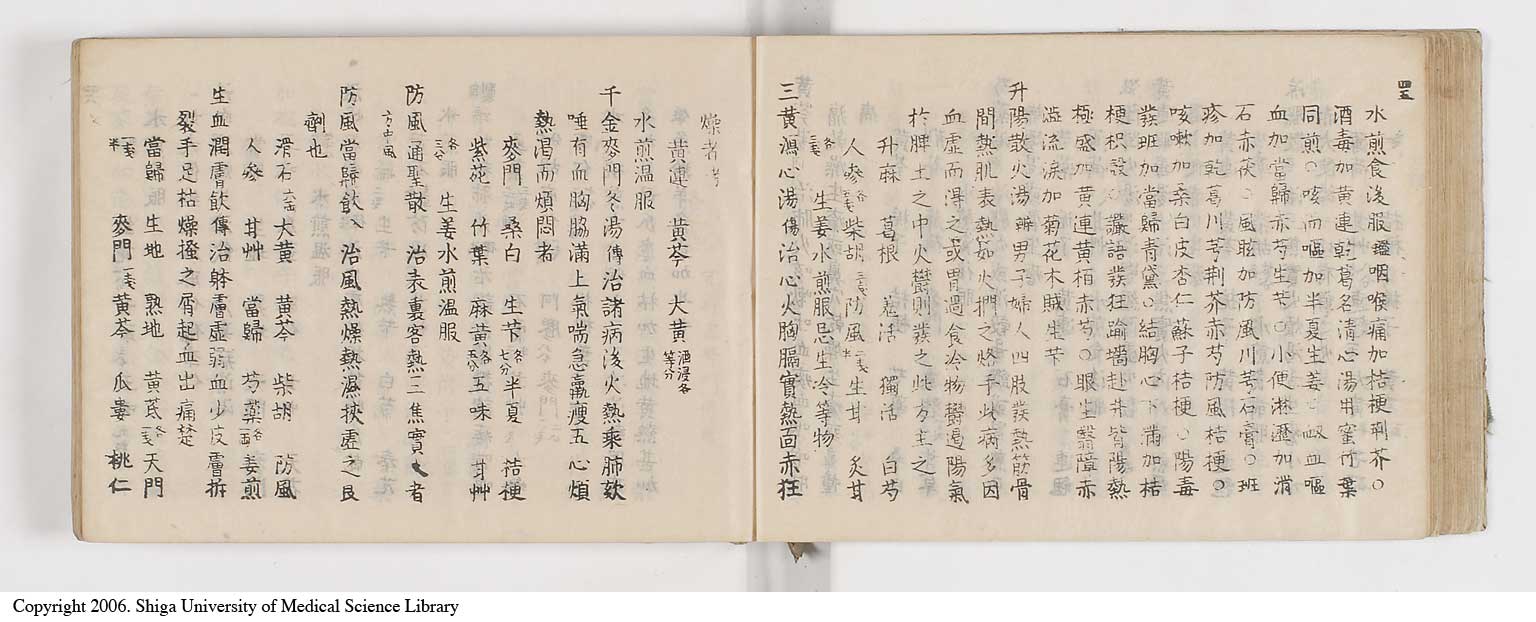 四五
水煎食後服○咽喉痛加桔梗荆芥○
酒毒加黄連乾葛名清心湯用蜜竹葉
同煎○咳而嘔加半夏生姜○衂血嘔
血加當歸赤芍生芐○小便淋瀝加滑
石赤茯○風眩加防風川芎石膏○班
疹加乾葛川芎荆芥赤芍防風桔梗○
咳嗽加桑白皮杏仁蘇子桔梗○陽毒
發班加當歸青黛○結胸心下滿加桔
梗枳殼○讝語發狂踰墻赴井皆陽熱
極盛加黄連黄栢赤芍○眼生翳障赤
澁流淚加菊花木賊生芐
升陽散火湯辨男子婦人四肢發熱筋骨
間熱肌表熱如火捫之烙手此病多因
血虚而得之或胃過食冷物鬱遏陽氣
於脾土之中火鬱則發之此方主之
升麻 葛根 羗活 獨活 白芍
人參各五戔柴胡三戔防風一戔半生甘 炙甘
各二戔 生姜水煎服忌生冷等物
三黄瀉心湯傷治心火胸膈實熱面赤狂
燥者考
黄連 黄芩 大黄酒浸各等分
水煎温服
千金麥門冬湯傳治諸病後火熱乘肺欬
唾有血胸脇滿上氣喘急羸瘦五心煩
熱渴而煩悶者
麥門 桑白 生芐各七分半夏 桔梗
紫苑 竹葉 麻黄各五分五味 甘艸
各三分 生姜水煎温服
防風通聖散 治表裏客熱三焦實人者
方中風
防風當歸飲 治風熱燥熱濕挾虚之良
劑也
滑石六戔大黄 黄芩 柴胡 防風
人參 甘艸 當歸 芍藥各一戔姜煎
生血潤膚飲傳治躰膚虚弱血少皮膚拆
裂手足枯燥搔之屑起血出痛楚
當歸 生地 熟地 黄芪各一戔天門
一戔半 麥門一戔黄芩 瓜蔞 桃仁